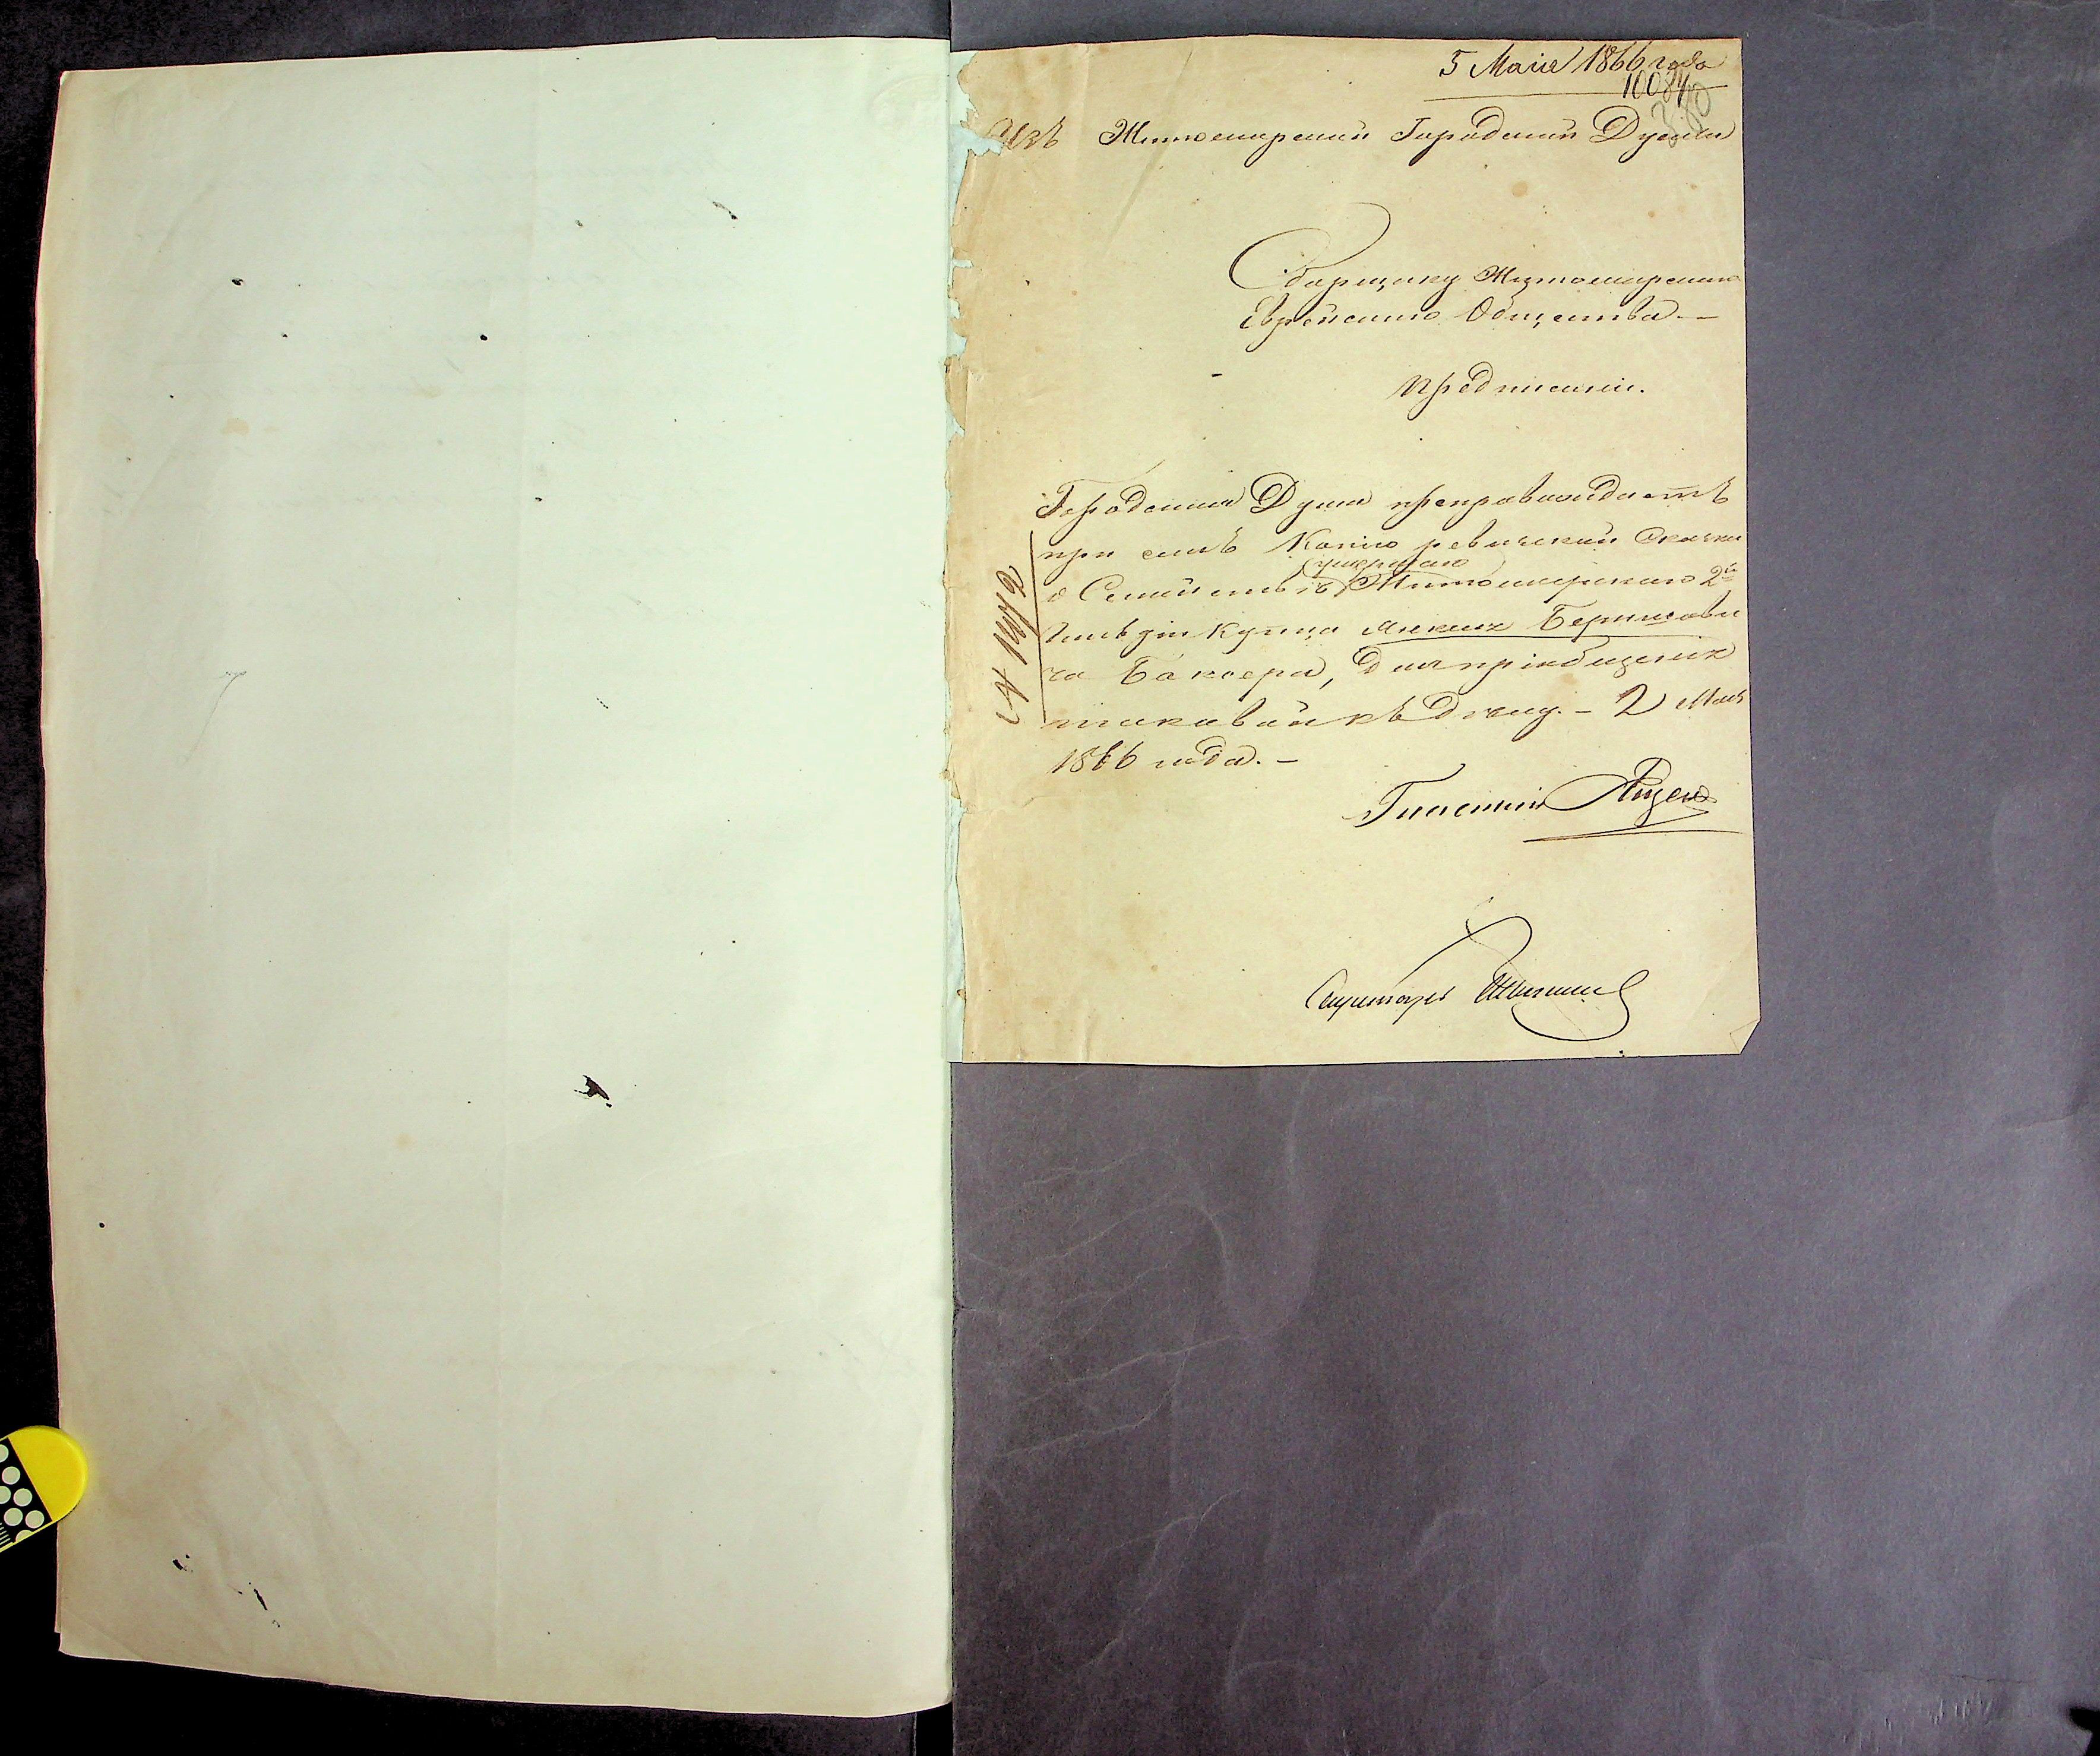 5 Маія 1866 года
10084
Изъ Житомирской Городской Думы
Сборщику Житомирскаго
Еврейскаго Общества. —
Предписаніе.
Городская Дума препровождаетъ
при семъ Копію ревизской Сказки
умершаго
о Семействѣ Житомирскаго 2й
Гильдіи Купца Берковови
ча Бакоера, для пріобщенія
таковой къ дѣлу. — 2 Мая
1866 года. —
Гласный
Секретарь